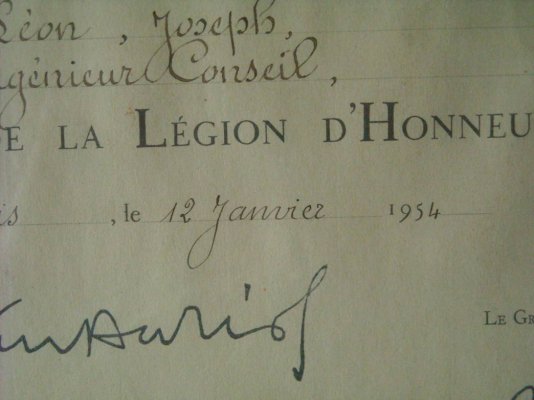 Léon, Joseph,
ngénieur Conseil,
DE LA LÉGION D'HONNEU
is , le 12 Janvier 1954
LE GR